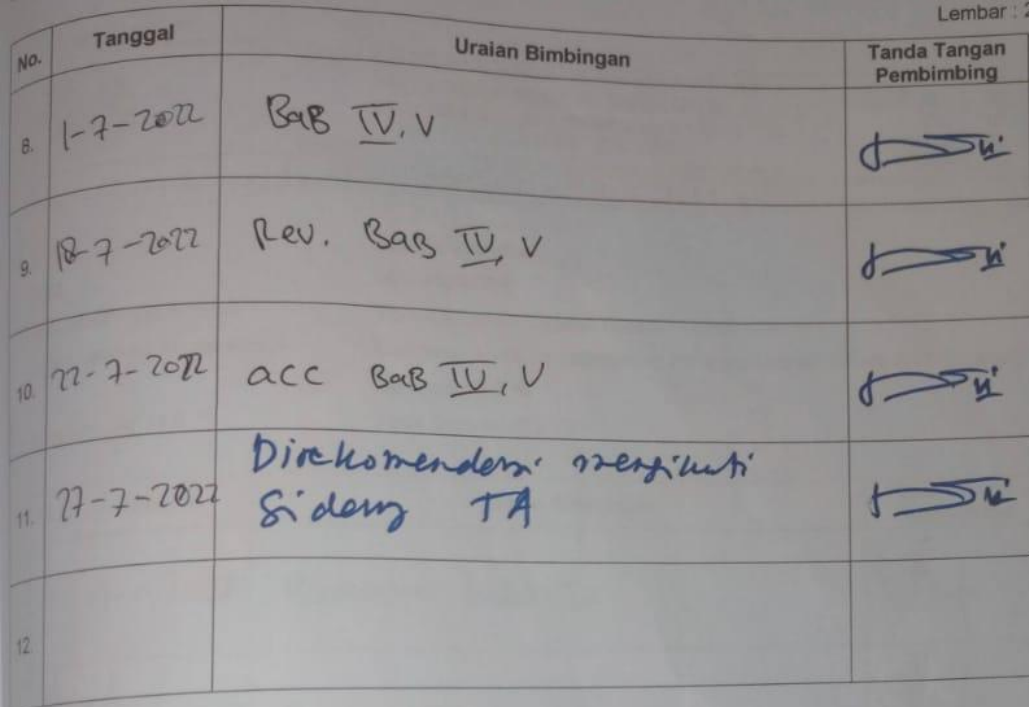 Lembar : 2
No. Tanggal Uraian Bimbingan Tanda Tangan
Pembimbing
8. 1-7-2022 BaB IV, V
9. 18-7-2022 Rev. BaB IV, V
10. 22-7-2022 acc BaB IV, V
11. 27-7-2022 Direkomendasi mengikuti
Sidang TA
12